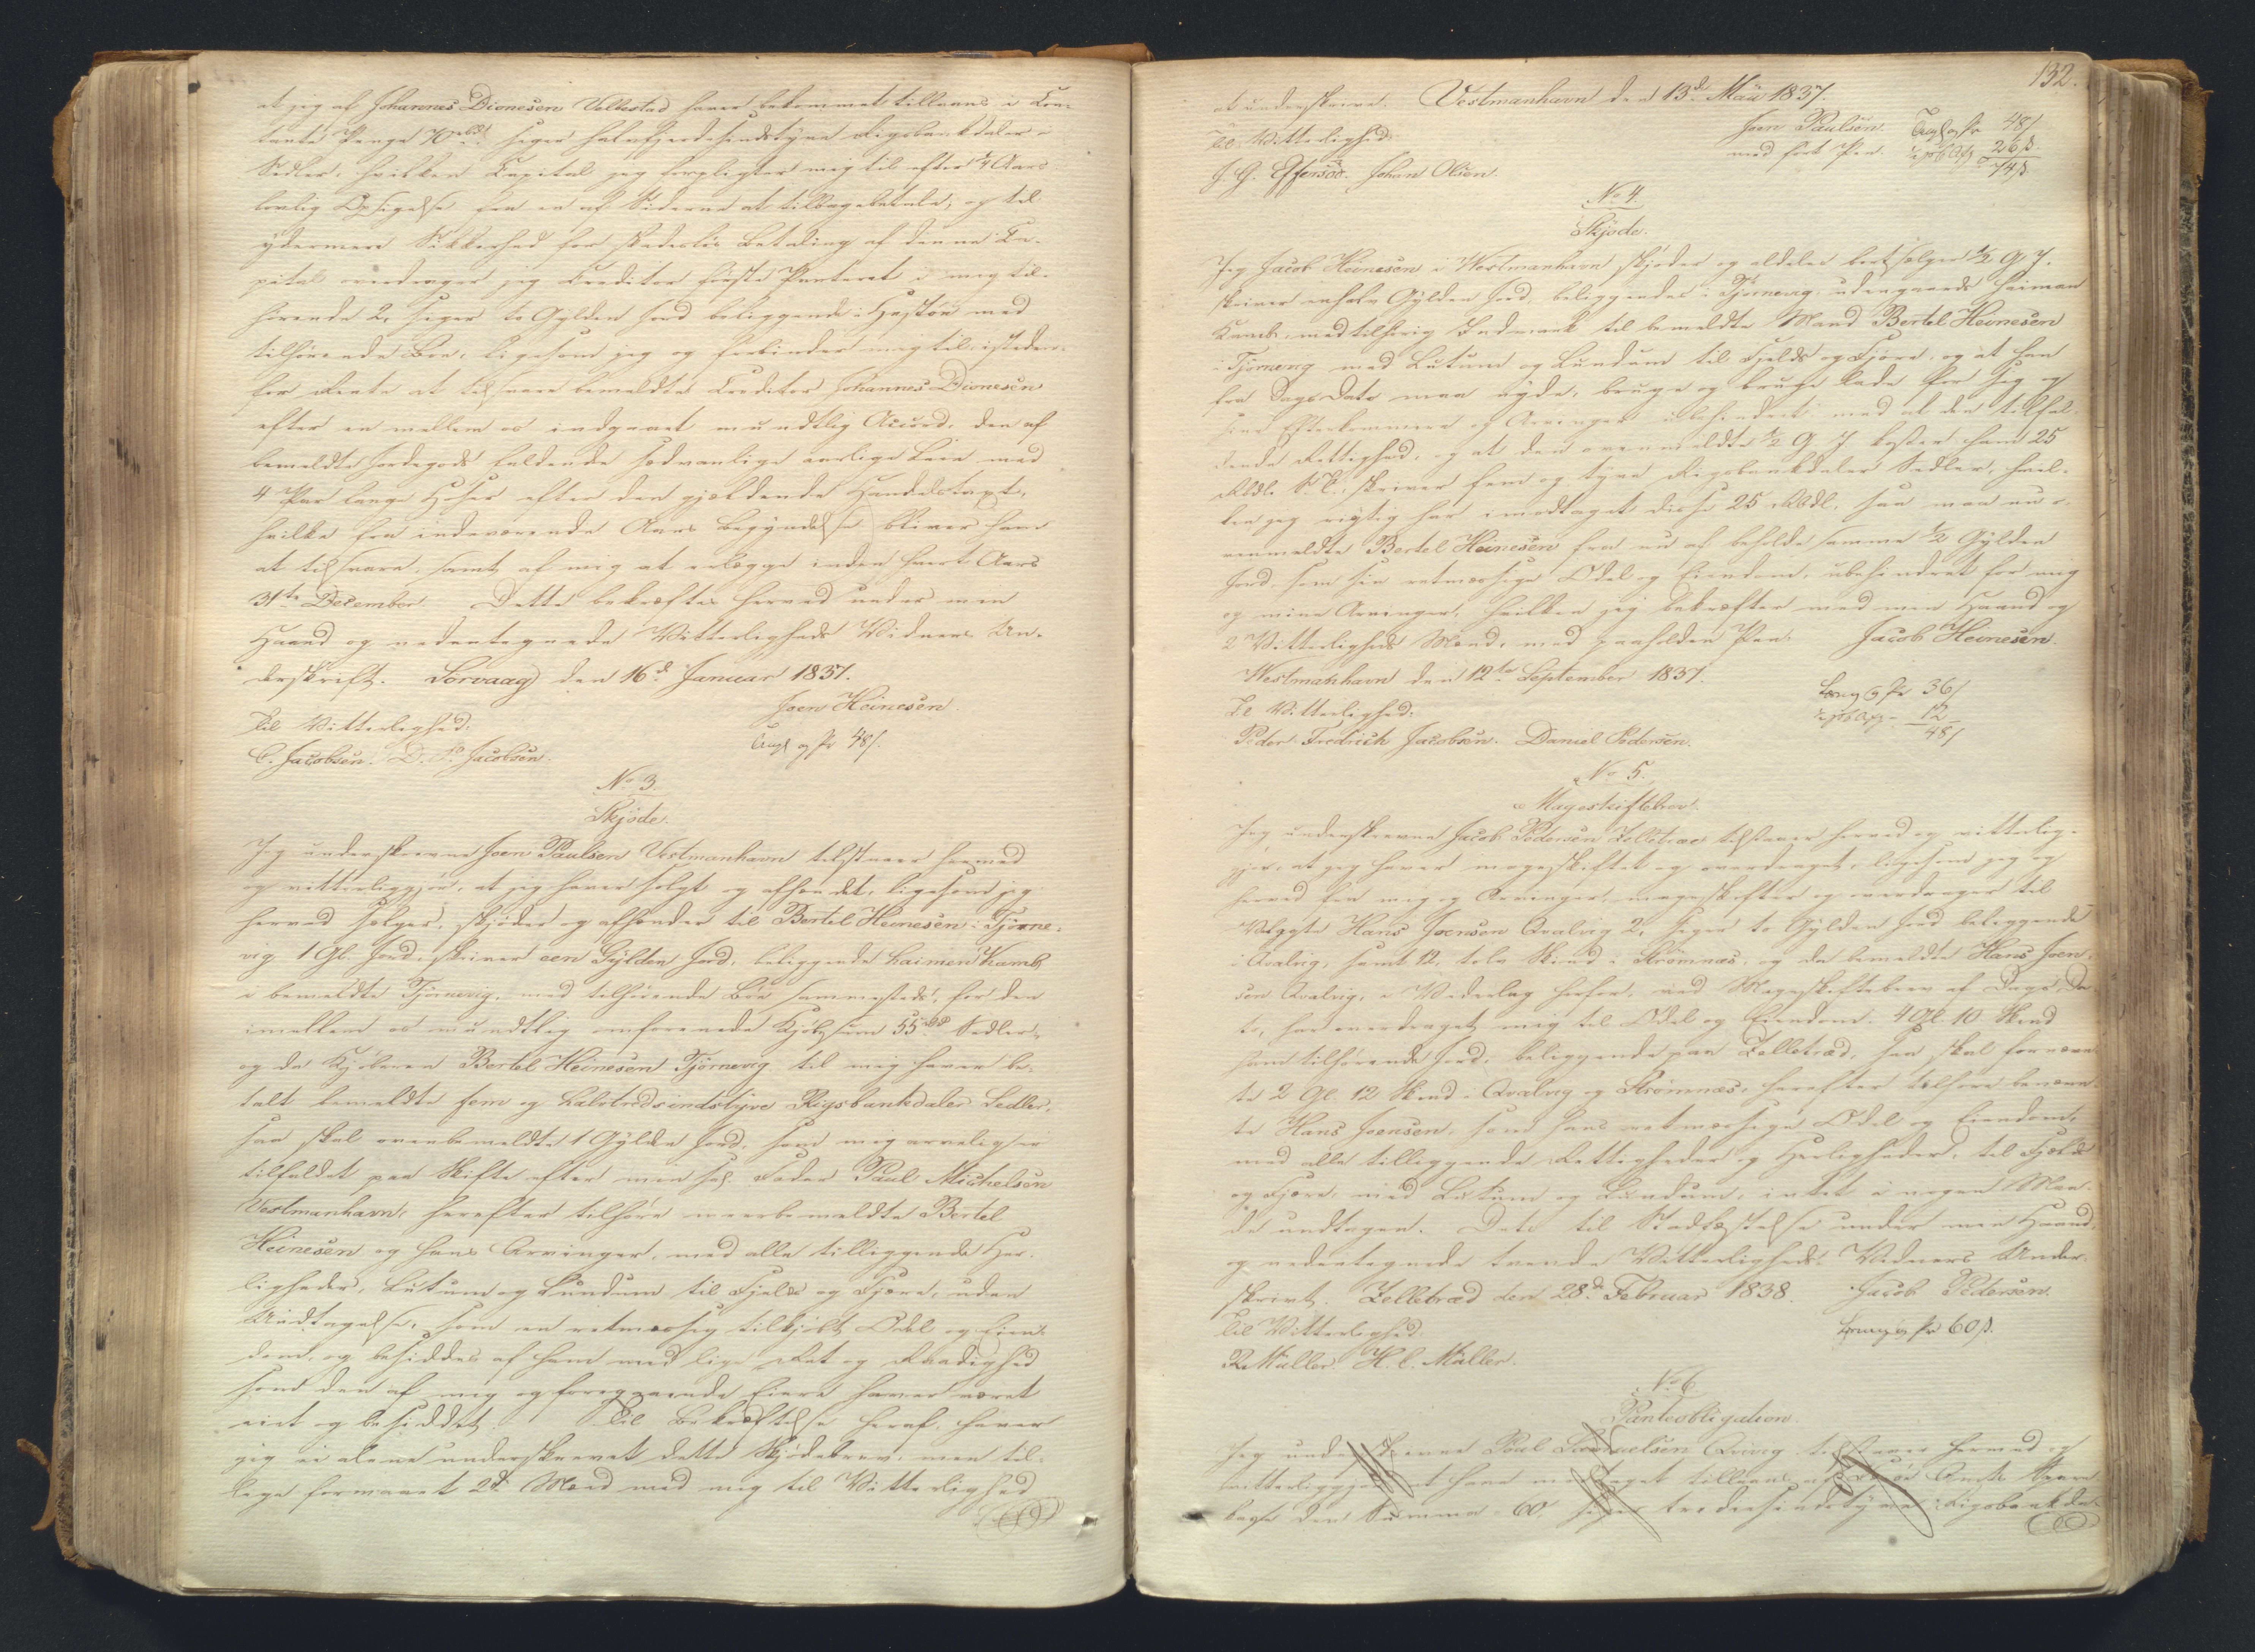 at jeg af Johannes Dionesen Velbestad haver bekommet tillaans i Con-
tante Penge 70 rbd. siger halvfjerdesindstyve Rigsbankdaler
Sedler, hvilken Capital jeg forpligter mig til efter 1/4 Aars
lovlig Opsigelse fra en af Siderne at tilbagebetale; og til
ydermere Sikkerhed for skadeslös Betaling af denne Ca-
pital overdrager jeg Creditor förste Panteret i mig til-
hörende 2, siger to Gylden Jord beliggende i med
tilhörende Böe, ligesom jeg og forbinder mig til isteden-
for Rente at tilsvare bemeldte Creditor Johannes Dionesen
efter en mellem os indgaaet mundtlig Accord, den af
bemeldte Jordegods faldende sædvanlige aarlige Leie med
4 Par lange Hoser efter den gjældende Handelstaxt,
hvilke fra indeværende Aars Begyndelse bliver ham
at tilsvare, samt af mig at erlægge inden hvert Aars
31te December. Dette bekræftes herved under min
Haand og nedentegnede Vitterligheds Vidners Un-
derskrift. Sörvaag den 16d. Januar 1837.
Joen Heinesen.
Til Vitterlighed:
C. Jacobsen. D. P. Jacobsen.
48/.
No 3.
Skjöde.
Jeg underskrevne Joen Paulsen Vestmanhavn tilstaaer hermed
og vitterliggjör, at jeg haver solgt og afhændet, ligesom jeg
herved sælger, skjöder og afhænder til Bertel Heinesen i Tjörne-
vig 1 Gl. Jord, skriver een Gylden Jord, beliggende haimen Kamb
i bemeldte Tjörnevig, med tilhörende Böe sammesteds, for den
imellem os mundtlig omforenede Kjöbesum 55 rbd Sedler,
og da Kjöberen Bertel Heinesen Tjörnevig til mig haver be-
talt bemeldte fem og halvtredsindstyve Rigsbankdaler Sedler,
saa skal ovenbemeldte 1 Gylden Jord, som mig arveligen
tilfaldet paa Skifte efter min sal. Fader Paul Michelsen
Vestmanhavn, herefter tilhöre meerbemeldte Bertel
Heinesen og hans Arvinger, med alle tilliggende Her-
ligheder, Lutum og Lundum til Fjelds og Fjære, uden
Undtagelse, som en retmæssig tilkjöbt Odel og Eien-
dom, og besiddes af ham med lige Ret og Raadighed
som den af mig og foregaaende Eiere haver været
eiet og besiddet. Til Bekræftelse heraf haver
jeg ei alene underskrevet dette Skjödebrev, men til-
lige formaaet 2de Mænd med mig til Vitterlighed
132.
at underskrive. Vestmanhavn den 13de Mäi 1837.
Joen Paulsen.
med fört Pen.
Til Vitterlighed:
J. G. Effersöe. Johan Olsen.
48/
26 ß.
74 ß
No 4.
Skjöde.
Jeg Jacob Heinesen i Westmanhavn skjöder og aldeles bortsælger 1/2 G. J.
skriver en halv Gylden Jord, beliggendes i Tjörnevig, udengaards haiman
Kamb, med tilhörig Indmark til bemeldte Mand Bertel Heinesen
i Tjörnevig med Lutum og Lundum til Fjelds og Fjöre, og at han
fra Dags Dato maa nyde, bruge og bruge lade for sig og
sine Efterkommere og Arvinger ubehindret, med al den tilfal-
dende Rettighed, og at den ovenmeldte 1/2 G J kosten ham 25
Rbdl. S. T. skriver fem og tyve Rigsbankdaler Sedler, hvil-
ken jeg rigtig har modtaget disse 25 Rbdl. saa maa nu o-
venmeldte Bertel Heinesen fra nu af beholde samme 1/2 Gylden
Jord, som sin retmæssige Odel og Eiendom, ubehindret for mig
og mine Arvinger, hvilken jeg bekræfter med min Haand og
2 Vitterligheds Mænd, med paaholden Pen. Jacob Heinesen.
Westmanhavn den 12te September 1837.
Til Vitterlighed:
Peder Fredrich Jacobsen. Daniel Pedersen.
36/
12
48/
No 5.
Mageskiftebrev.
Jeg underskrevne Jacob Pedersen Zelletræe tilstaaer herved og vitterlig-
gjör, at jeg haver mageskiftet og overdraget, ligesom jeg og
herved fra mig og Arvinger, mageskifter og overdrager til
Hans Joensen Qvalvig 2, siger to Gylden Jord beliggende
i Qvalvig, samt 12, tolv Skind i Strömnæs; og da bemeldte Hans Joen-
sen Qvalvig, i Vederlag herfor, ved Mageskiftebrev af Dags Da-
to, har overdraget mig til Odel og Eiendom 4 Gl. 10 Skind
ham tilhörende Jord, beliggende paa Zelletræd, saa skal fornævn-
te 2 Gl. 12 Skind i Qvalvig og Strömnæs, herefter tilhöre benævn-
te Hans Joensen, som hans retmæssige Odel og Eiendom,
med alle tilliggende Rettigheder og Herligheder, til Fjelds
og Fjære, med Lutum og Lundum, intet i nogen Maa-
de undtagen. Dets til Stadfæstelse under min Haand
og nedentegnede tvende Vitterligheds Vidners Under-
skrivt. Zelletræd den 28de Februar 1838. Jacob Pedersen.
Til Vitterlighed:
R. Müller. H. C. Müller.
60 ß.
No 6.
Panteobligation.
Jeg underskrevne Poul Samuelsen Qvivig tilstaaer hermed og
vitterliggjör, at have modtaget tillaans af Færöe Amts Spare-
kasse den Summa 60, siger tredsindstyve Rigsbankda-